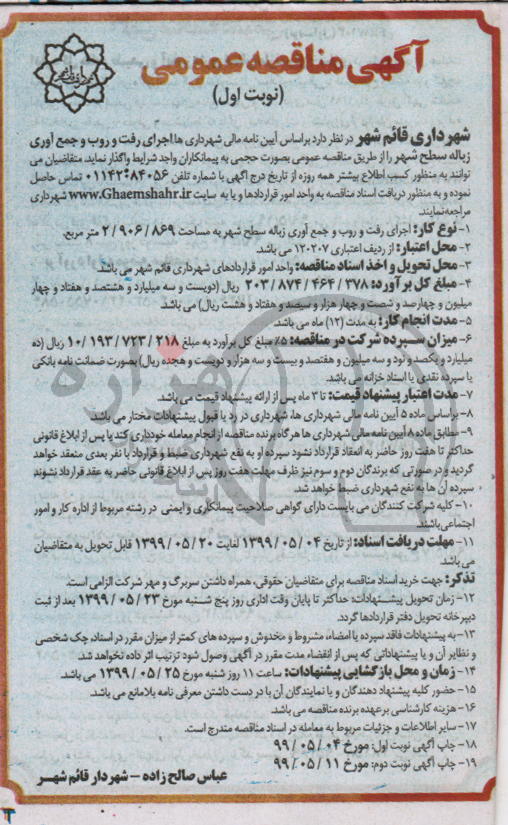 آگهی مناقصه عمومی
(نوبت اول)
شهرداری قائم شهر در نظر دارد براساس آیین نامه مالی شهرداری ها اجرای رفت و روب و جمع آوری
زباله سطح شهر را از طریق مناقصه عمومی بصورت حجمی به پیمانکاران واجد شرایط واگذار نماید. متقاضیان می
توانند به منظور کسب اطلاع بیشتر همه روزه از تاریخ درج آگهی با شماره تلفن ۰۱۱۴۲۰۸۴۰۵۶ تماس حاصل
نموده و به منظور دریافت اسناد مناقصه به واحد امور قراردادها و یا به سایت www.Ghaemshahr.ir شهرداری
مراجعه نمایند.
۱- نوع کار: اجرای رفت و روب و جمع آوری زباله سطح شهر به مساحت ۲/۹۰۶/۸۶۹ متر مربع.
۲- محل اعتبار: از ردیف اعتباری ۱۲۰۲۰۷ می باشد.
۳- محل تحویل و اخذ اسناد مناقصه: واحد امور قراردادهای شهرداری قائم شهر می باشد.
۴- مبلغ کل برآورد: ۲۰۳/۸۷۴/۴۶۴/۳۷۸ ریال (دویست و سه میلیارد و هشتصد و هفتاد و چهار
میلیون و چهارصد و شصت و چهار هزار و سیصد و هفتاد و هشت ریال) می باشد.
۵- مدت انجام کار: به مدت (۱۲) ماه می باشد.
۶- میزان سپرده شرکت در مناقصه: ۵٪ مبلغ کل برآورد به مبلغ ۱۰/۱۹۳/۷۲۳/۲۱۸ ریال (ده
میلیارد و یکصد و نود و سه میلیون و هفتصد و بیست و سه هزار و دویست و هجده ریال) بصورت ضمانت نامه بانکی
یا سپرده نقدی یا اسناد خزانه می باشد.
۷- مدت اعتبار پیشنهاد قیمت: تا ۳ ماه پس از ارائه پیشنهاد قیمت می باشد.
۸- براساس ماده ۵ آیین نامه مالی شهرداری ها، شهرداری در رد یا قبول پیشنهادات مختار می باشد.
۹- مطابق ماده ۸ آیین نامه مالی شهرداری ها هرگاه برنده مناقصه از انجام معامله خودداری کند یا پس از ابلاغ قانونی
حداکثر تا هفت روز حاضر به انعقاد قرارداد نشود سپرده او به نفع شهرداری ضبط و قرارداد با نفر بعدی منعقد خواهد
گردید و در صورتی که برندگان دوم و سوم نیز ظرف مهلت هفت روز پس از ابلاغ قانونی حاضر به عقد قرارداد نشوند
سپرده آن ها به نفع شهرداری ضبط خواهد شد.
۱۰- کلیه شرکت کنندگان می بایست دارای گواهی صلاحیت پیمانکاری و ایمنی در رشته مربوط از اداره کار و امور
اجتماعی باشند.
۱۱- مهلت دریافت اسناد: از تاریخ ۱۳۹۹/۰۵/۰۴ لغایت ۱۳۹۹/۰۵/۲۰ قابل تحویل به متقاضیان
می باشد.
تذکر: جهت خرید اسناد مناقصه برای متقاضیان حقوقی، همراه داشتن سربرگ و مهر شرکت الزامی است.
۱۲- زمان تحویل پیشنهادات: حداکثر تا پایان وقت اداری روز پنج شنبه مورخ ۱۳۹۹/۰۵/۲۳ بعد از ثبت
دبیرخانه تحویل دفتر قراردادها گردد.
۱۳- به پیشنهادات فاقد سپرده یا امضاء، مشروط و مخدوش و سپرده های کمتر از میزان مقرر در اسناد، چک شخصی
و نظایر آن و یا پیشنهاداتی که پس از انقضاء مدت مقرر در آگهی وصول شود ترتیب اثر داده نخواهد شد.
۱۴- زمان و محل بازگشایی پیشنهادات: ساعت ۱۱ روز شنبه مورخ ۱۳۹۹/۰۵/۲۵ می باشد.
۱۵- حضور کلیه پیشنهاد دهندگان و یا نمایندگان آن با در دست داشتن معرفی نامه بلامانع می باشد.
۱۶- هزینه کارشناسی برعهده برنده مناقصه می باشد.
۱۷- سایر اطلاعات و جزئیات مربوط به معامله در اسناد مناقصه مندرج است.
۱۸- چاپ آگهی نوبت اول: مورخ ۹۹/۰۵/۰۴
۱۹- چاپ آگهی نوبت دوم: مورخ ۹۹/۰۵/۱۱
عباس صالح زاده - شهردار قائم شهر